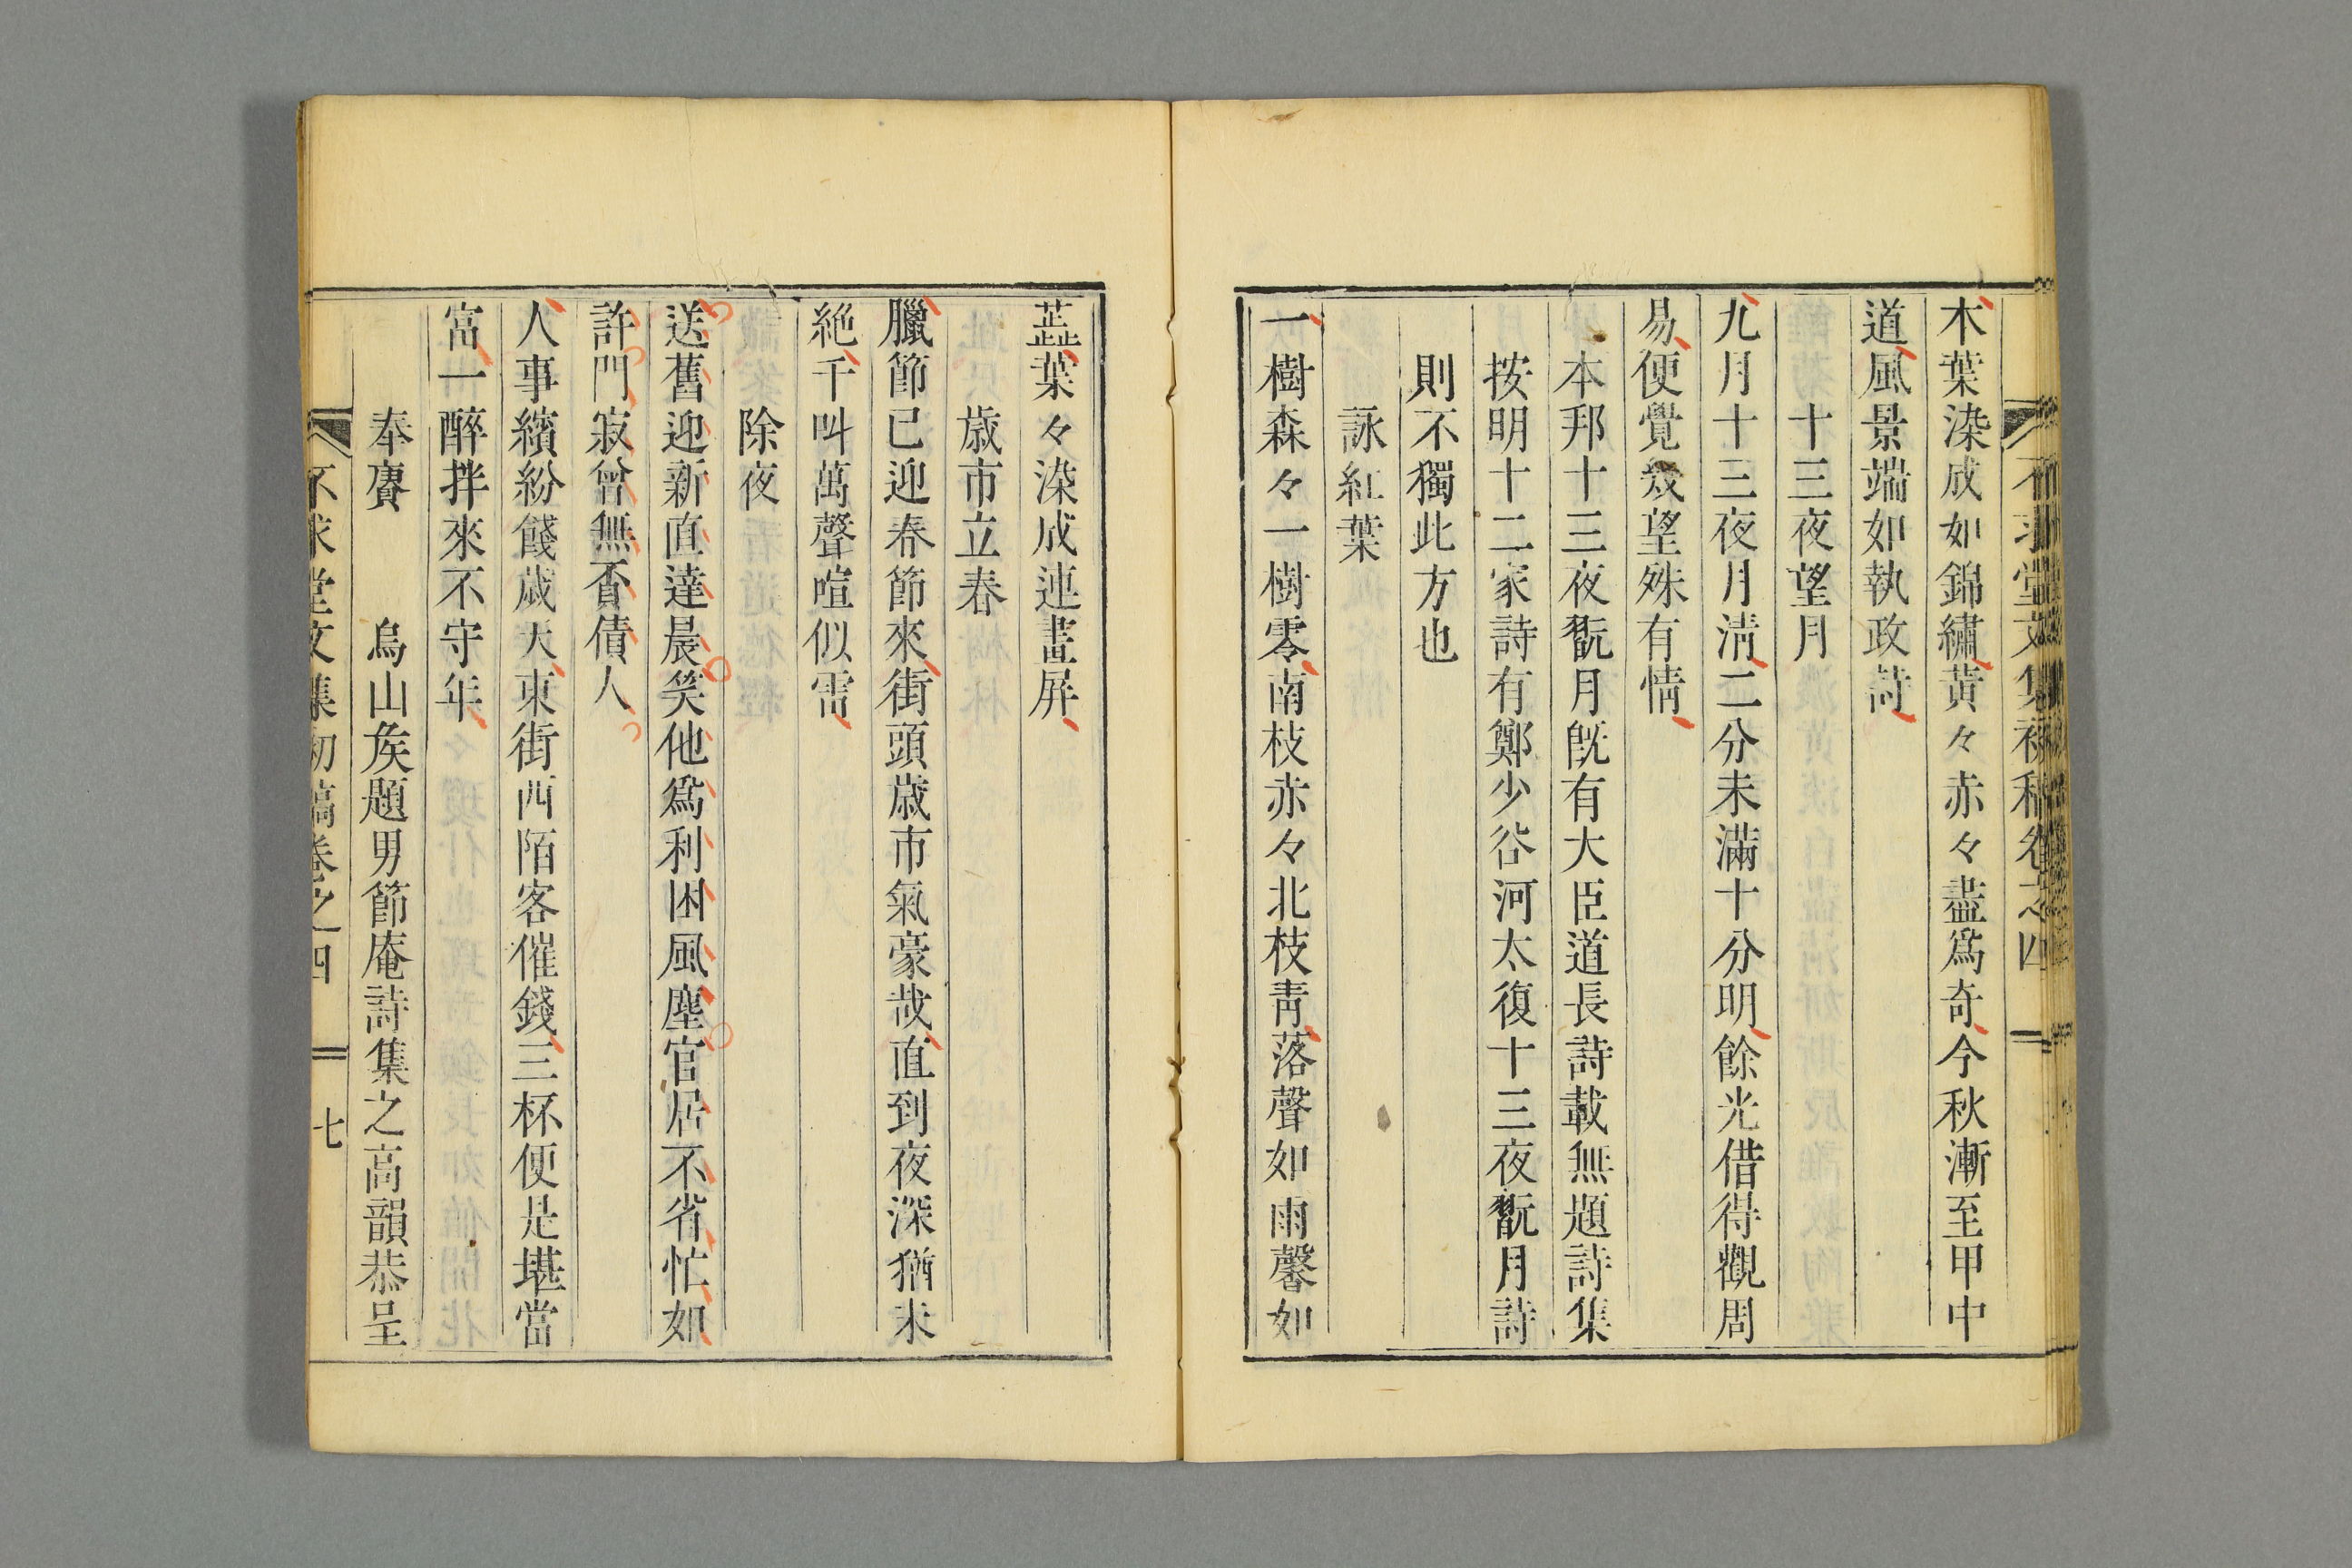 不求堂文集初稿卷之四
木葉染成如錦繡黃々赤々盡爲奇今秋漸至甲中
道風景端如執政詩
十三夜望月
九月十三夜月清二分未滿十分明餘光借得觀周
易便覺幾望殊有情
本邦十三夜翫月旣有大臣道長詩載無題詩集
按明十二家詩有鄭少谷河太復十三夜翫月詩
則不獨此方也
詠紅葉
一樹森々一樹零南枝赤々北枝靑落聲如雨馨如
蕋葉々染成連畫屏
歳市立春
臘節已迎春節來街頭歳市氣豪哉直到夜深猶未
絶千叫萬聲喧似雷
除夜
送舊迎新直達晨笑他爲利困風塵官居不省忙如
許門寂曾無責債人
人事繽紛餞歳天東街西陌客催錢三杯便是堪當
富一醉拌來不守年
奉賡　烏山矦題男節庵詩集之高韻恭呈
不求堂文集初稿卷之四　七